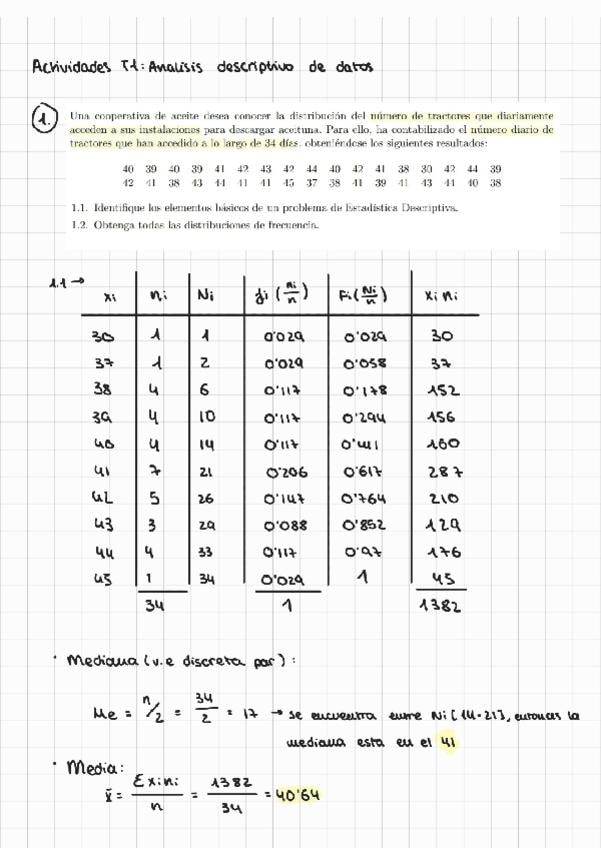 Actividades T1: Analisis descriptivo de datos
1.
Una cooperativa de aceite desea conocer la distribución del número de tractores que diariamente
acceden a sus instalaciones para descargar aceituna. Para ello, ha contabilizado el número diario de
tractores que han accedido a lo largo de 34 días, obteniéndose los siguientes resultados:
40 39 40 39 41 42 43 42 44 40 42 41 38 30 42 44 39
42 41 38 43 44 41 41 45 37 38 41 39 41 43 44 40 38
1.1. Identifique los elementos básicos de un problema de Estadística Descriptiva.
1.2. Obtenga todas las distribuciones de frecuencia.
1.1 →
xi ni Ni fi (ni/n) Fi (Ni/n) xi ni
30 1 1 0'029 0'029 30
37 1 2 0'029 0'058 37
38 4 6 0'117 0'178 152
39 4 10 0'117 0'294 156
40 4 14 0'117 0'411 160
41 7 21 0'206 0'617 287
42 5 26 0'147 0'764 210
43 3 29 0'088 0'852 129
44 4 33 0'117 0'97 176
45 1 34 0'029 1 45
34 1 1382
· Mediana (v.e discreta par) :
Me = n/2 = 34/2 = 17 → se encuentra entre Ni [14-21], entonces la
mediana esta en el 41
· Media:
x̄ = Σxini/n = 1382/34 = 40'64